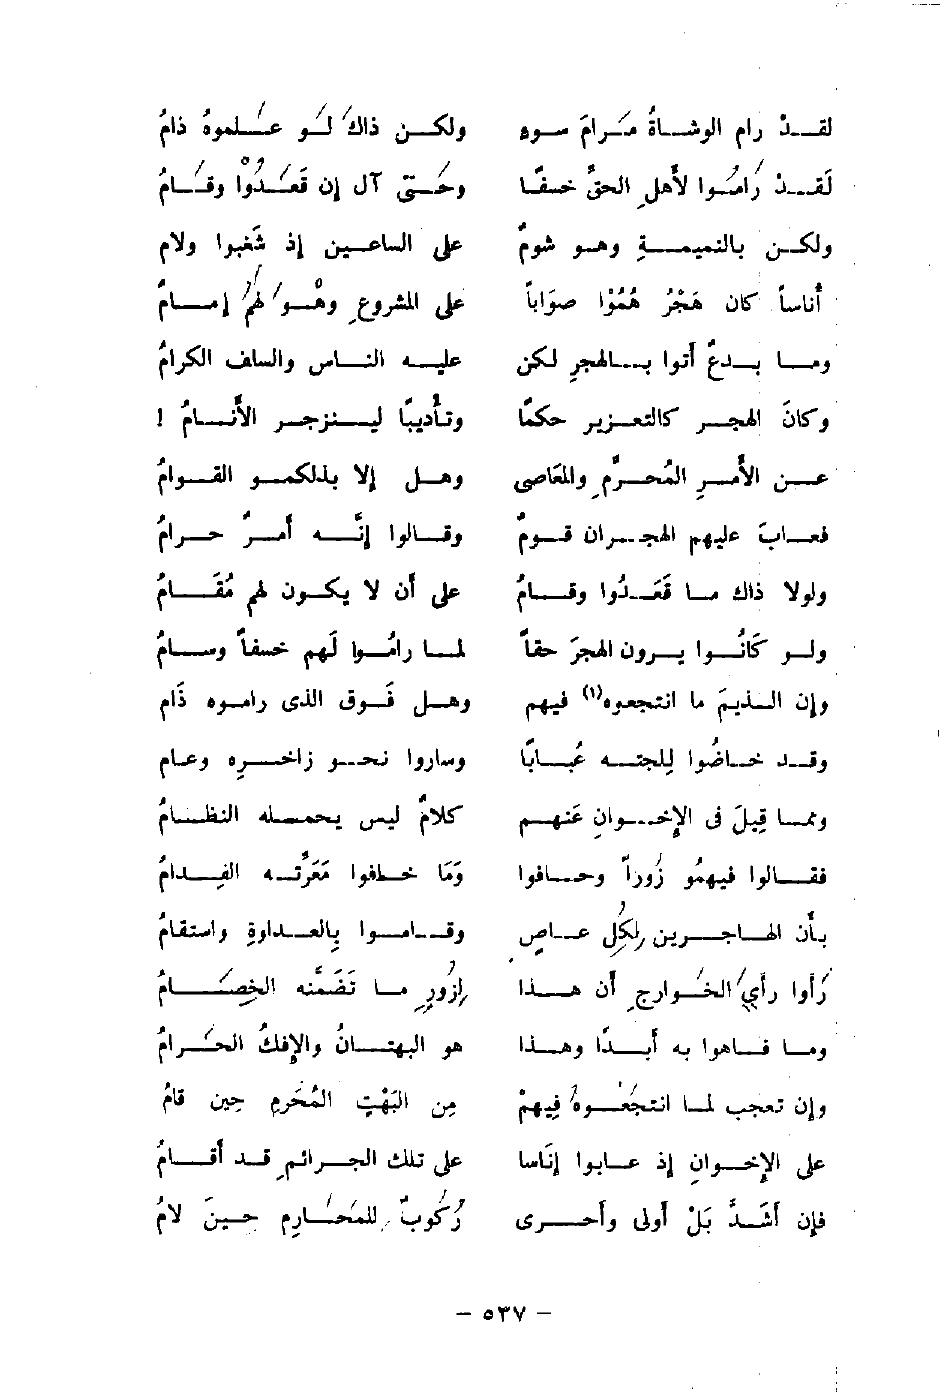 لقـدْ رام الوشـاةُ مَـرامَ سوءٍ ولكـن ذاكَ لَـو عَـلموهُ ذامُ
لَقـدْ رَامُـوا لأَهلِ الحقِّ خسفًـا وحَـتَّى آل إن قَعَـدُوْا وقَـامُ
ولكـن بالنميمـةِ وهـو شومٌ على الساعـين إذ شَغَبوا ولام
أُناساً كان هَجْرُ هُمُوْا صوَاباً على المشروعِ وهْـوَ لهُمْ إمـامٌ
ومـا بـدعٌ أتوا بـالهجرِ لكن عليـه النـاس والسلف الكرامُ
وكانَ الهجـر كالتعـزير حكمًا وتأْديبًا ليـنزجـر الأَنـامُ !
عـن الأَمـرِ المُحـرَّمِ والمَعَاصى وهـل إلا بذلكمـو القـوامُ
فعـابَ عليهم الهجـران قـومٌ وقـالوا إنَّـه أمـرٌ حـرامُ
ولولا ذاك مـا قَعَـدُوا وقـامُ على أَن لا يكـون لهم مُقَـامُ
ولـو كَانُـوا يـرون الهجرَ حقاً لمـا رامُـوا لَهم خسفاً وسـامُ
وإن الـذيمَ ما انتجعوه(١) فيهم وهـل فَـوق الذى راموه ذَام
وقـد خـاضُوا لِلجتـه عُبـابًا وساروا نحـو زاخـرِه وعام
وممـا قِيلَ فى الإِخـوانِ عَنهـم كلامٌ ليس يحمـله النظـامُ
فقـالوا فيهمُو زُوراً وحـافوا وَمَا خـافوا مَعَرَّتـه الفِـدامُ
بأَن الهـاجـرين لِكلِّ عـاصٍ وقـامـوا بِالعـداوةِ واستقامُ
رَأوا رأيَ الخَـوارجِ أن هـذا لِزُورٍ مـا تَضَمَّنه الخِصَـامُ
ومـا فـاهوا به أَبـدًا وهـذا هو البهتـانُ والإِفكُ الحَـرامُ
وإن تعجب لمـا انتجَعُـوهُ فِيهمْ مِن البَهْتِ المُحَرمِ حِين قامُ
على الإِخـوانِ إذ عـابوا إنَاسا على تلك الجـرائمِ قـد أَقـامُ
فإن أَشَـدَّ بَلْ أولى وأحـرى رُكُوبٌ لِلمَحَـارِمِ حِـينَ لامُ
– ٥٣٧ –